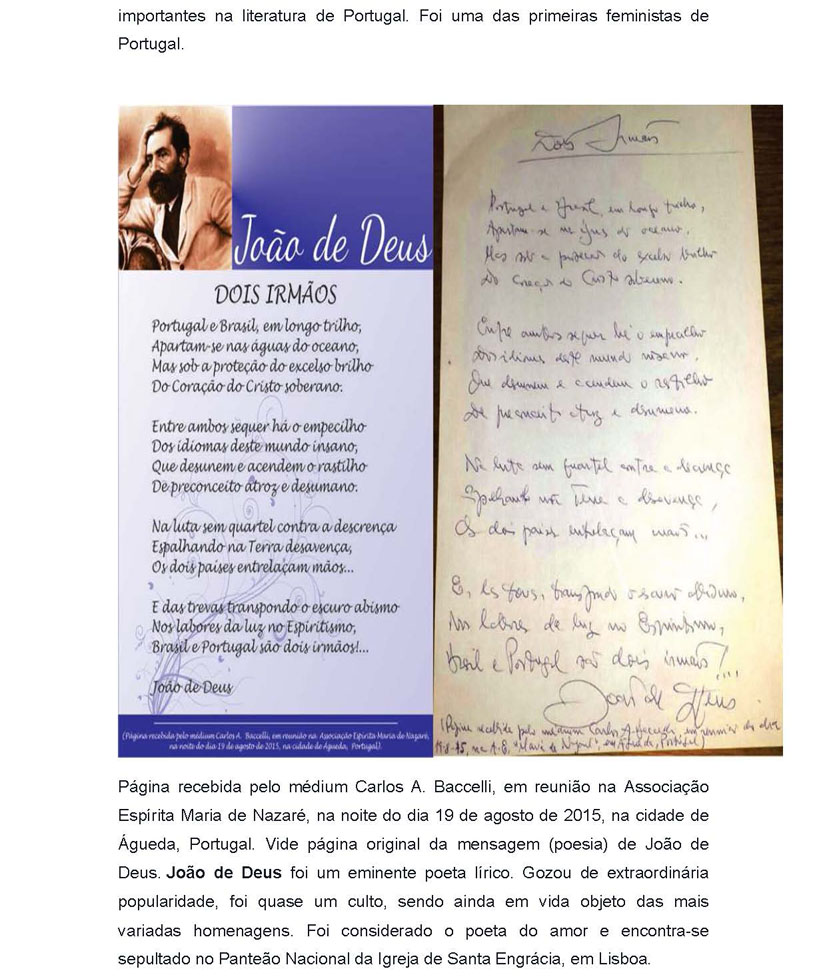 importantes na literatura de Portugal. Foi uma das primeiras feministas de
Portugal.
João de Deus
DOIS IRMÃOS
Portugal e Brasil, em longo trilho,
Apartam-se nas águas do oceano,
Mas sob a proteção do excelso brilho
Do Coração do Cristo soberano.
Entre ambos sequer há o empecilho
Dos idiomas deste mundo insano,
Que desunem e acendem o rastilho
De preconceito atroz e desumano.
Na luta sem quartel contra a descrença
Espalhando na Terra desavença,
Os dois países entrelaçam mãos...
E das trevas transpondo o escuro abismo
Nos labores da luz no Espiritismo,
Brasil e Portugal são dois irmãos!...
João de Deus
(Página recebida pelo médium Carlos A. Baccelli, em reunião na Associação Espírita Maria de Nazaré,
na noite do dia 19 de agosto de 2015, na cidade de Águeda, Portugal).
Dois Irmãos
Portugal e Brasil, em longo trilho,
Apartam-se nas águas do oceano,
Mas sob a proteção do excelso brilho
Do Coração do Cristo soberano.
Entre ambos sequer há o empecilho
Dos idiomas deste mundo insano,
Que desunem e acendem o rastilho
De preconceito atroz e desumano.
Na luta sem quartel contra a descrença
Espalhando na Terra a desavença,
Os dois países entrelaçam mãos...
E, das trevas, transpondo o escuro abismo,
Nos labores da luz no Espiritismo,
Brasil e Portugal são dois irmãos!...
João de Deus
(Página recebida pelo médium Carlos A. Baccelli, em reunião do dia
Portugal)
Página recebida pelo médium Carlos A. Baccelli, em reunião na Associação
Espírita Maria de Nazaré, na noite do dia 19 de agosto de 2015, na cidade de
Águeda, Portugal. Vide página original da mensagem (poesia) de João de
Deus. João de Deus foi um eminente poeta lírico. Gozou de extraordinária
popularidade, foi quase um culto, sendo ainda em vida objeto das mais
variadas homenagens. Foi considerado o poeta do amor e encontra-se
sepultado no Panteão Nacional da Igreja de Santa Engrácia, em Lisboa.